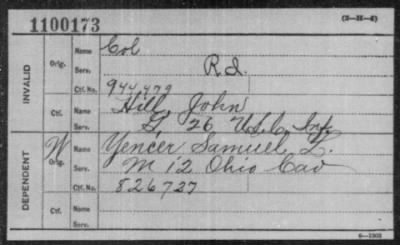 1100173
(3-H-6)
INVALID
Orig.
Name Col
Serv. R.I.
Ctf. No. 944,479
Ctf.
Name Hill, John
Serv. G, 26 U.S.C. Inf.
DEPENDENT
W
Orig.
Name Yencer Samuel L.
Serv. M 12 Ohio Cav
Ctf. No. 826727
Ctf.
Name
Serv.
6-1903